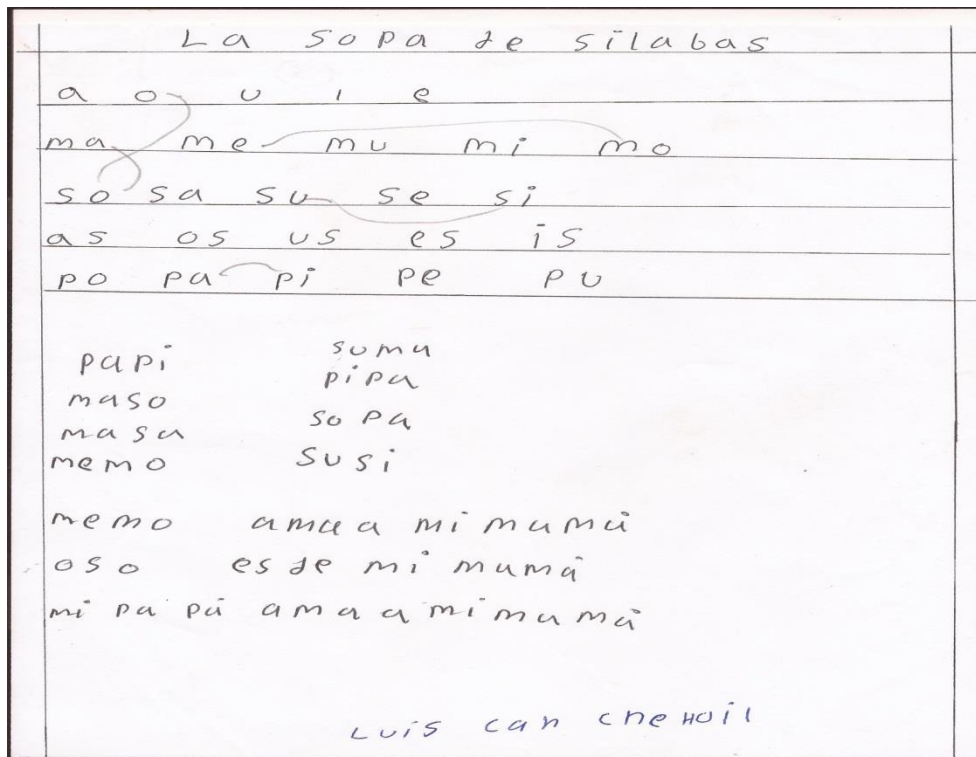 La sopa de silabas
a o u i e
ma me mu mi mo
so sa su se si
as os us es is
po pa pi pe pu
papi suma
pipa
maso
sopa
masa
memo susi
memo amaa mi mamá
oso esde mi mamá
mi papá amaamimamá
Luis can